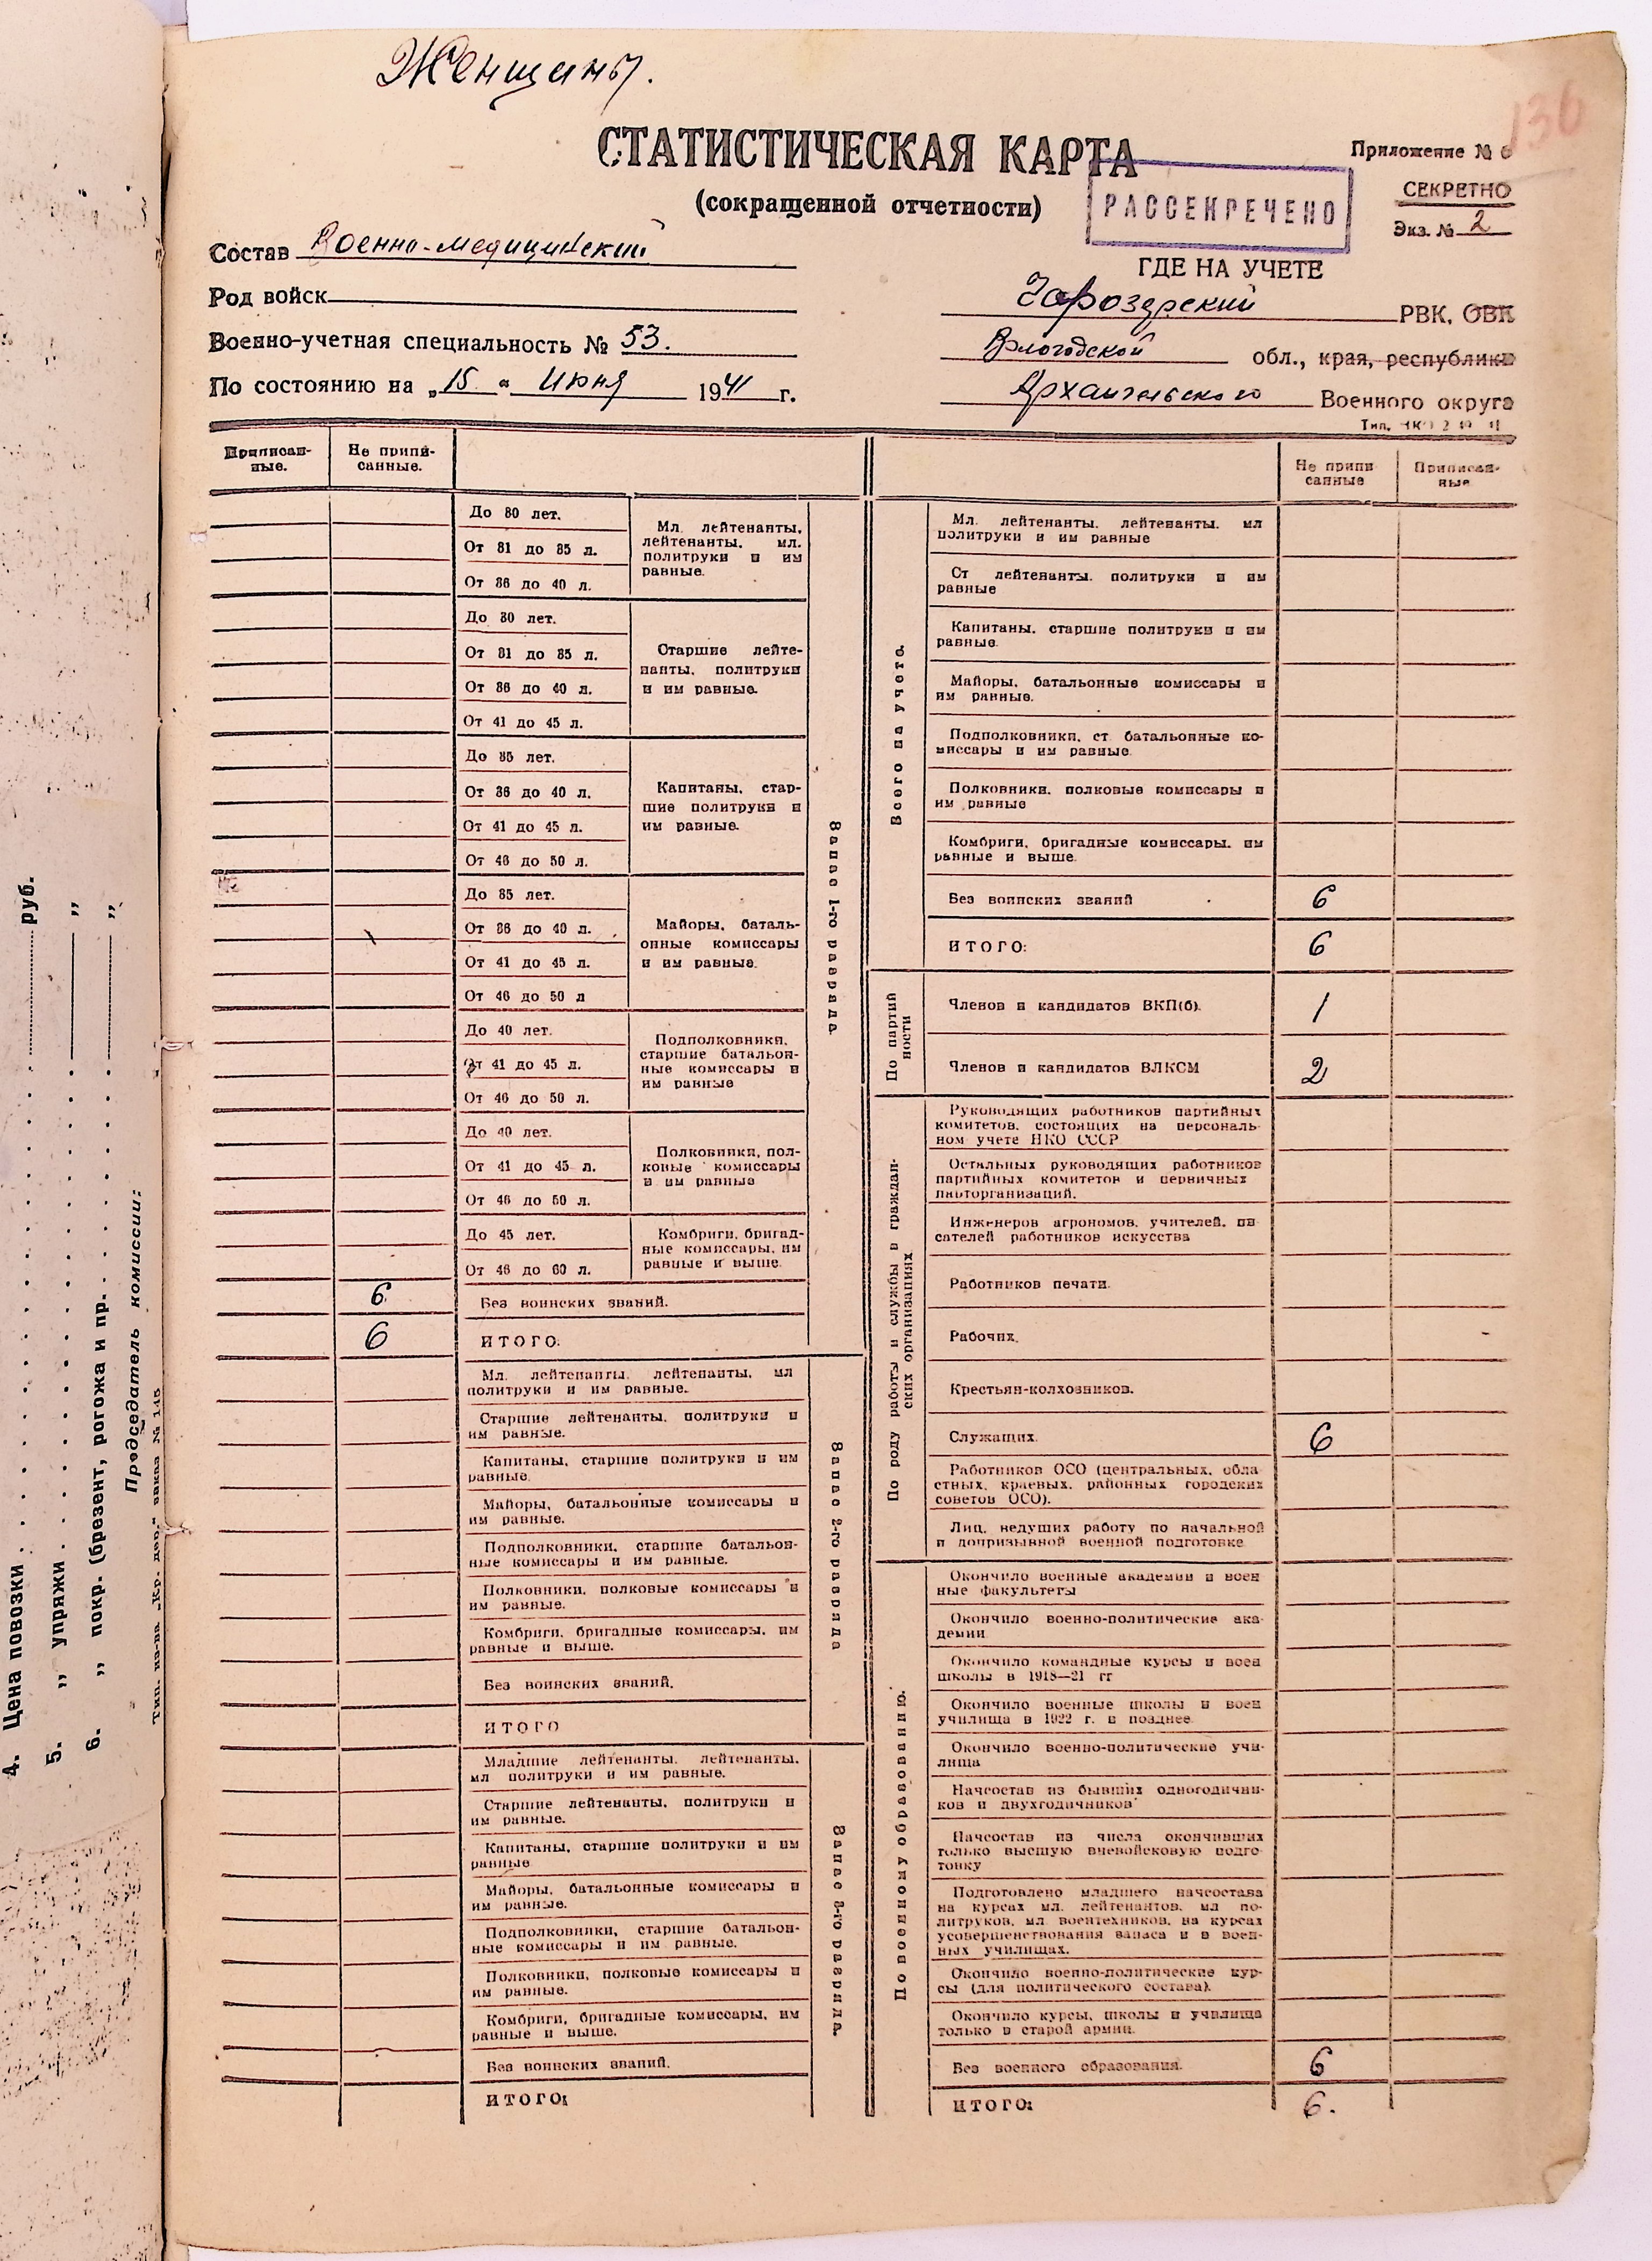 Женщины.
136
СТАТИСТИЧЕСКАЯ КАРТА
(сокращенной отчетности)
Приложение №
СЕКРЕТНО
РАССЕКРЕЧЕНО
Экз. № 2
Состав Военно-медицинский
Род войск
Военно-учетная специальность № 53.
По состоянию на „15 “ Июня 1941 г.
ГДЕ НА УЧЕТЕ
Чарозерский РВК, ОВК
Вологодской обл., края, республики
Архангельского Военного округа
Приписан-
ные.
Не припи-
санные.
До 30 лет.
От 31 до 35 л.
От 36 до 40 л.
Мл. лейтенанты,
лейтенанты, мл.
политруки и им
равные.
До 30 лет.
От 31 до 35 л.
От 36 до 40 л.
От 41 до 45 л.
Старшие лейте-
нанты, политруки
и им равные.
До 35 лет.
От 36 до 40 л.
От 41 до 45 л.
От 46 до 50 л.
Капитаны, стар-
шие политруки и
им равные.
До 35 лет.
От 36 до 40 л.
От 41 до 45 л.
От 46 до 50 л
Майоры, баталь-
онные комиссары
и им равные.
До 40 лет.
От 41 до 45 л.
От 46 до 50 л.
Подполковники,
старшие батальон-
ные комиссары и
им равные
До 40 лет.
От 41 до 45 л.
От 46 до 50 л.
Полковники, пол-
ковые комиссары
и им равные
До 45 лет.
От 46 до 60 л.
Комбриги, бригад-
ные комиссары, им
равные и выше.
6. Без воинских званий.
6 ИТОГО:
Запас 1-го разряда.
Мл. лейтенанты, лейтенанты, мл
политруки и им равные.
Старшие лейтенанты, политруки и
им равные.
Капитаны, старшие политруки и им
равные.
Майоры, батальонные комиссары и
им равные.
Подполковники, старшие батальон-
ные комиссары и им равные.
Полковники, полковые комиссары и
им равные.
Комбриги, бригадные комиссары, им
равные и выше.
Без воинских званий.
ИТОГО
Запас 2-го разряда
Младшие лейтенанты, лейтенанты,
мл политруки и им равные.
Старшие лейтенанты, политруки и
им равные.
Капитаны, старшие политруки и им
равные
Майоры, батальонные комиссары и
им равные.
Подполковники, старшие батальон-
ные комиссары и им равные.
Полковники, полковые комиссары и
им равные.
Комбриги, бригадные комиссары, им
равные и выше.
Без воинских званий.
ИТОГО:
Запас 3-го разряда.
Не припи
санные
Приписан-
ные
Всего на учете.
Мл. лейтенанты, лейтенанты, мл
политруки и им равные
Ст лейтенанты, политруки и им
равные
Капитаны, старшие политруки и им
равные.
Майоры, батальонные комиссары и
им равные.
Подполковники, ст батальонные ко-
миссары и им равные.
Полковники, полковые комиссары и
им равные
Комбриги, бригадные комиссары, им
равные и выше.
Без воинских званий 6
ИТОГО: 6
По партий
ности
Членов и кандидатов ВКП(б). 1
Членов и кандидатов ВЛКСМ 2
По роду работы и службы в граждан-
ских организациях
Руководящих работников партийных
комитетов, состоящих на персональ-
ном учете НКО СССР
Остальных руководящих работников
партийных комитетов и первичных
парторганизаций.
Инженеров агрономов, учителей, пи
сателей работников искусства
Работников печати.
Рабочих.
Крестьян-колхозников.
Служащих. 6
Работников ОСО (центральных, обла
стных, краевых, районных городских
советов ОСО).
Лиц, ведущих работу по начальной
и допризывной военной подготовке
По военному образованию.
Окончило военные академии и воен
ные факультеты
Окончило военно-политические ака-
демии
Окончило командные курсы и воен
школы в 1918—21 гг
Окончило военные школы и воен
училища в 1922 г. и позднее.
Окончило военно-политические учи-
лища
Начсостав из бывших одногодични-
ков и двухгодичников
Начсостав из числа окончивших
только высшую вневойсковую подго
товку
Подготовлено младшего начсостава
на курсах мл. лейтенантов, мл по-
литруков, мл. воентехников, на курсах
усовершенствования запаса и в воен-
ных училищах.
Окончило военно-политические кур-
сы (для политического состава).
Окончило курсы, школы и училища
только в старой армии.
Без военного образования. 6
ИТОГО: 6.
4. Цена повозки руб.
5. „ упряжи „
6. „ покр. (брезент, рогожа и пр. „
Председатель комиссии:
Тип. из-ва „Кр. дер.“ заказ № 145